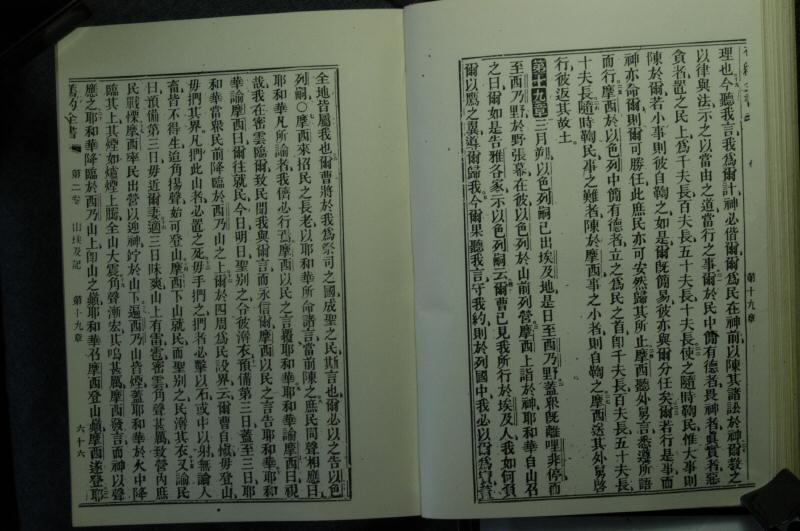 理也今聽我言我爲爾計神必偕爾爾爲民在神前以陳其諸訟於神爾敎之
以律與法示之以當由之道當行之事爾於民中簡有德者畏神者眞實者惡
貪者置之民上爲千夫長百夫長五十夫長十夫長使之隨時鞫民惟大事則
陳於爾若小事則彼自鞫之如是爾旣簡易彼亦與爾分任矣爾若行是事而
神亦命爾則爾可勝任此庶民亦可安然歸其所止摩西聽外舅言悉遵所語
而行摩西於以色列中簡有德者立之爲民之首卽千夫長百夫長五十夫長
十夫長隨時鞫民事之難者陳於摩西事之小者則自鞫之摩西遂其外舅啓
行彼返其故土
第十九章 三月朔以色列嗣已出埃及地是日至西乃野蓋衆旣離哩非停而
至西乃野於野張幕在彼以色列於山前列營摩西上詣於神耶和華自山召
之曰爾如是告雅各家示以色列嗣云爾曹已見我所行於埃及人我如何負
爾以鷹之翼導爾歸我今爾果聽我言守我約則於列國中我必以爾爲
第十九章
全地皆屬我也爾曹將於我爲祭司之國成聖之民斯言也爾必以之告以色
列嗣○摩西來招民之長老以耶和華所命諸言當前陳之庶民同聲相應曰
耶和華凡所諭者我儕必行焉摩西以民之言覆耶和華耶和華諭摩西曰視
哉我在密雲臨爾致民聞我與爾言而永信爾摩西以民之言告耶和華耶和
華諭摩西曰爾往就民今日明日聖别之令彼澣衣預備第三日蓋至三日耶
和華當衆民前降臨於西乃山之上爾於四周爲民設界云爾曹自愼毋登山
毋捫其界凡捫此山者必置之死毋手捫之捫者必擊以石或中以射無論人
畜皆不得生迨角揚聲始可登山摩西下山就民而聖别之民澣其衣又諭民
曰預備第三日毋近爾妻適三日味爽山上有雷電密雲角聲甚厲致營內庶
民戰慄摩西率民出營以迎神竚於山下遍西乃山皆煙蓋耶和華於火中降
臨其上其煙如爐煙上騰全山大震角聲漸宏其鳴甚厲摩西發言而神以聲
應之耶和華降臨於西乃山上卽山之巓耶和華召摩西登山巓摩西遂登耶
舊約全書 第二卷 出埃及記 第十九章 六十六